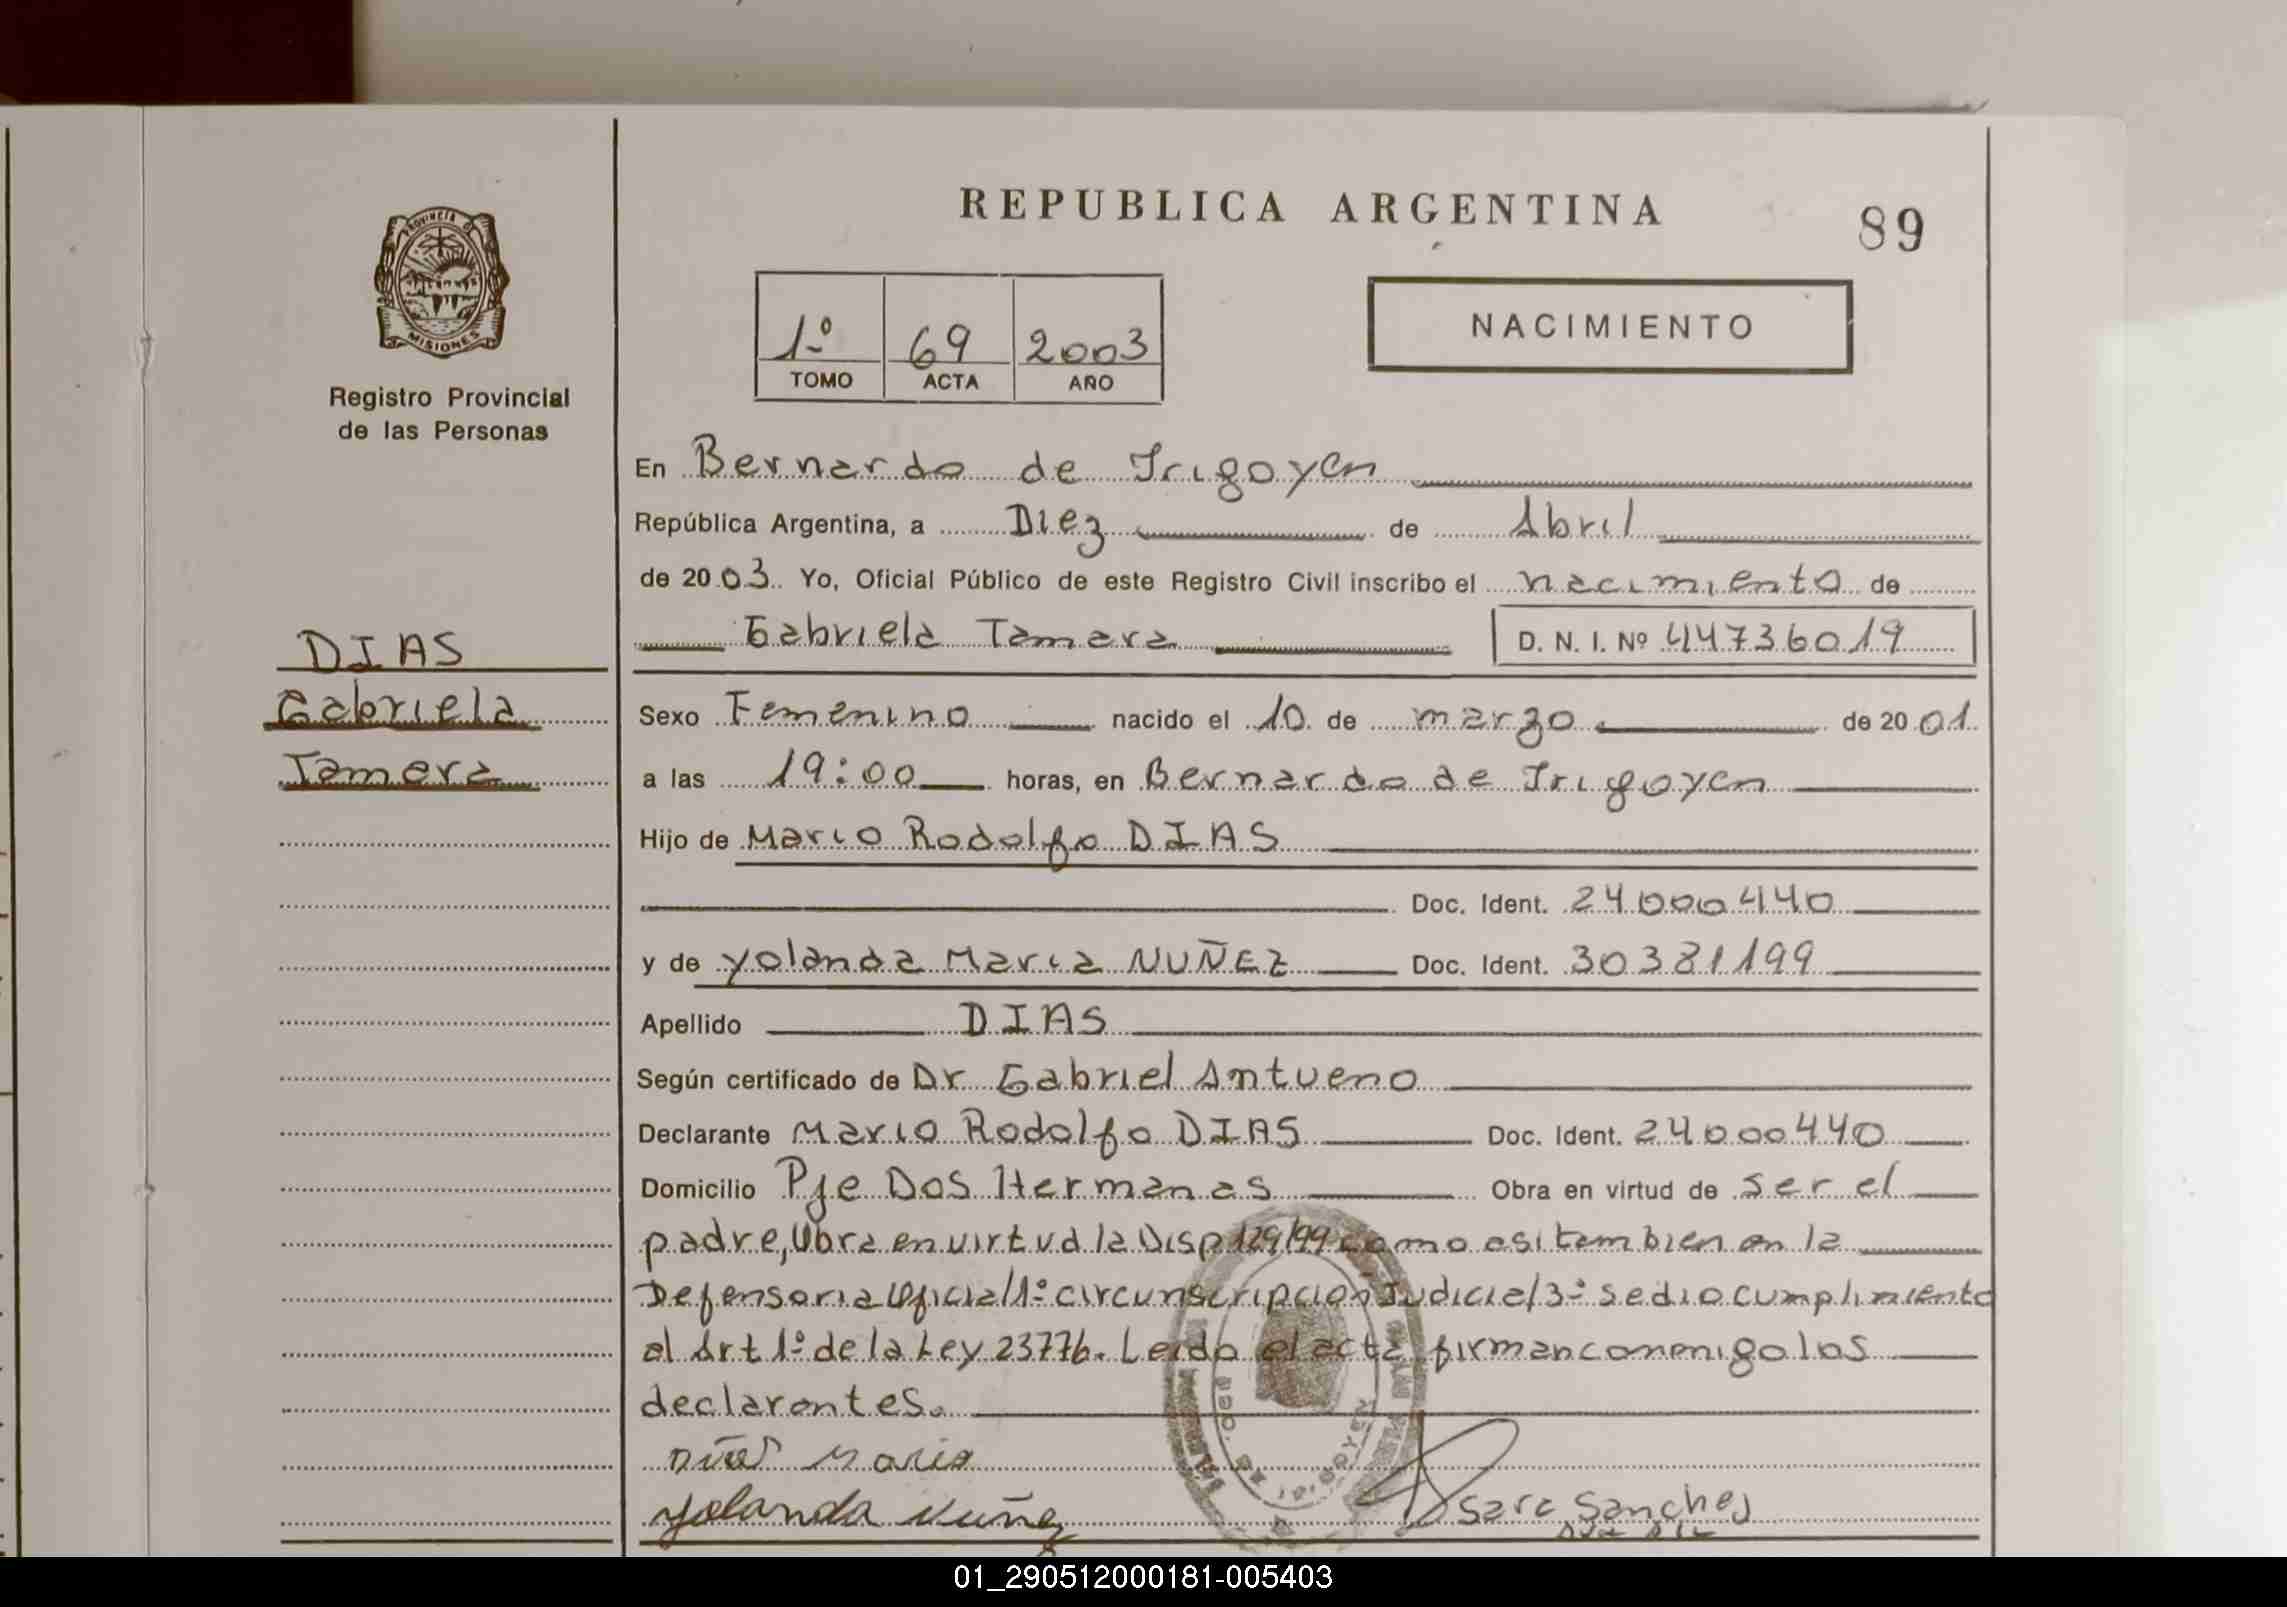 REPUBLICA ARGENTINA
89
PROVINCIA DE
MISIONES
Registro Provincial
de las Personas
1º 69 2003
TOMO ACTA AÑO
NACIMIENTO
En Bernardo de Irigoyen
República Argentina, a Diez de Abril
de 2003. Yo, Oficial Público de este Registro Civil inscribo el nacimiento de
Gabriela Tamara D. N. I. Nº 44736019
DIAS
Gabriela
Tamara
Sexo Femenino nacido el 10 de marzo de 2001
a las 19:00 horas, en Bernardo de Irigoyen
Hijo de Mario Rodolfo DIAS
Doc. Ident. 24000440
y de Yolanda Maria NUÑEZ Doc. Ident. 30381199
Apellido DIAS
Según certificado de Dr Gabriel Antueno
Declarante Mario Rodolfo DIAS Doc. Ident. 24000440
Domicilio Pje Dos Hermanas Obra en virtud de ser el
padre, Obra en virtud la Disp 129/99 como asi tambien en la
Defensoria Oficial 1º circunscripcion Judicial 3º se dio cumplimiento
al Art 1º de la Ley 23776. Leida el acta firman conmigo los
declarantes.
Maria
Yolanda Nuñez
Sara Sanchez
01_290512000181-005403